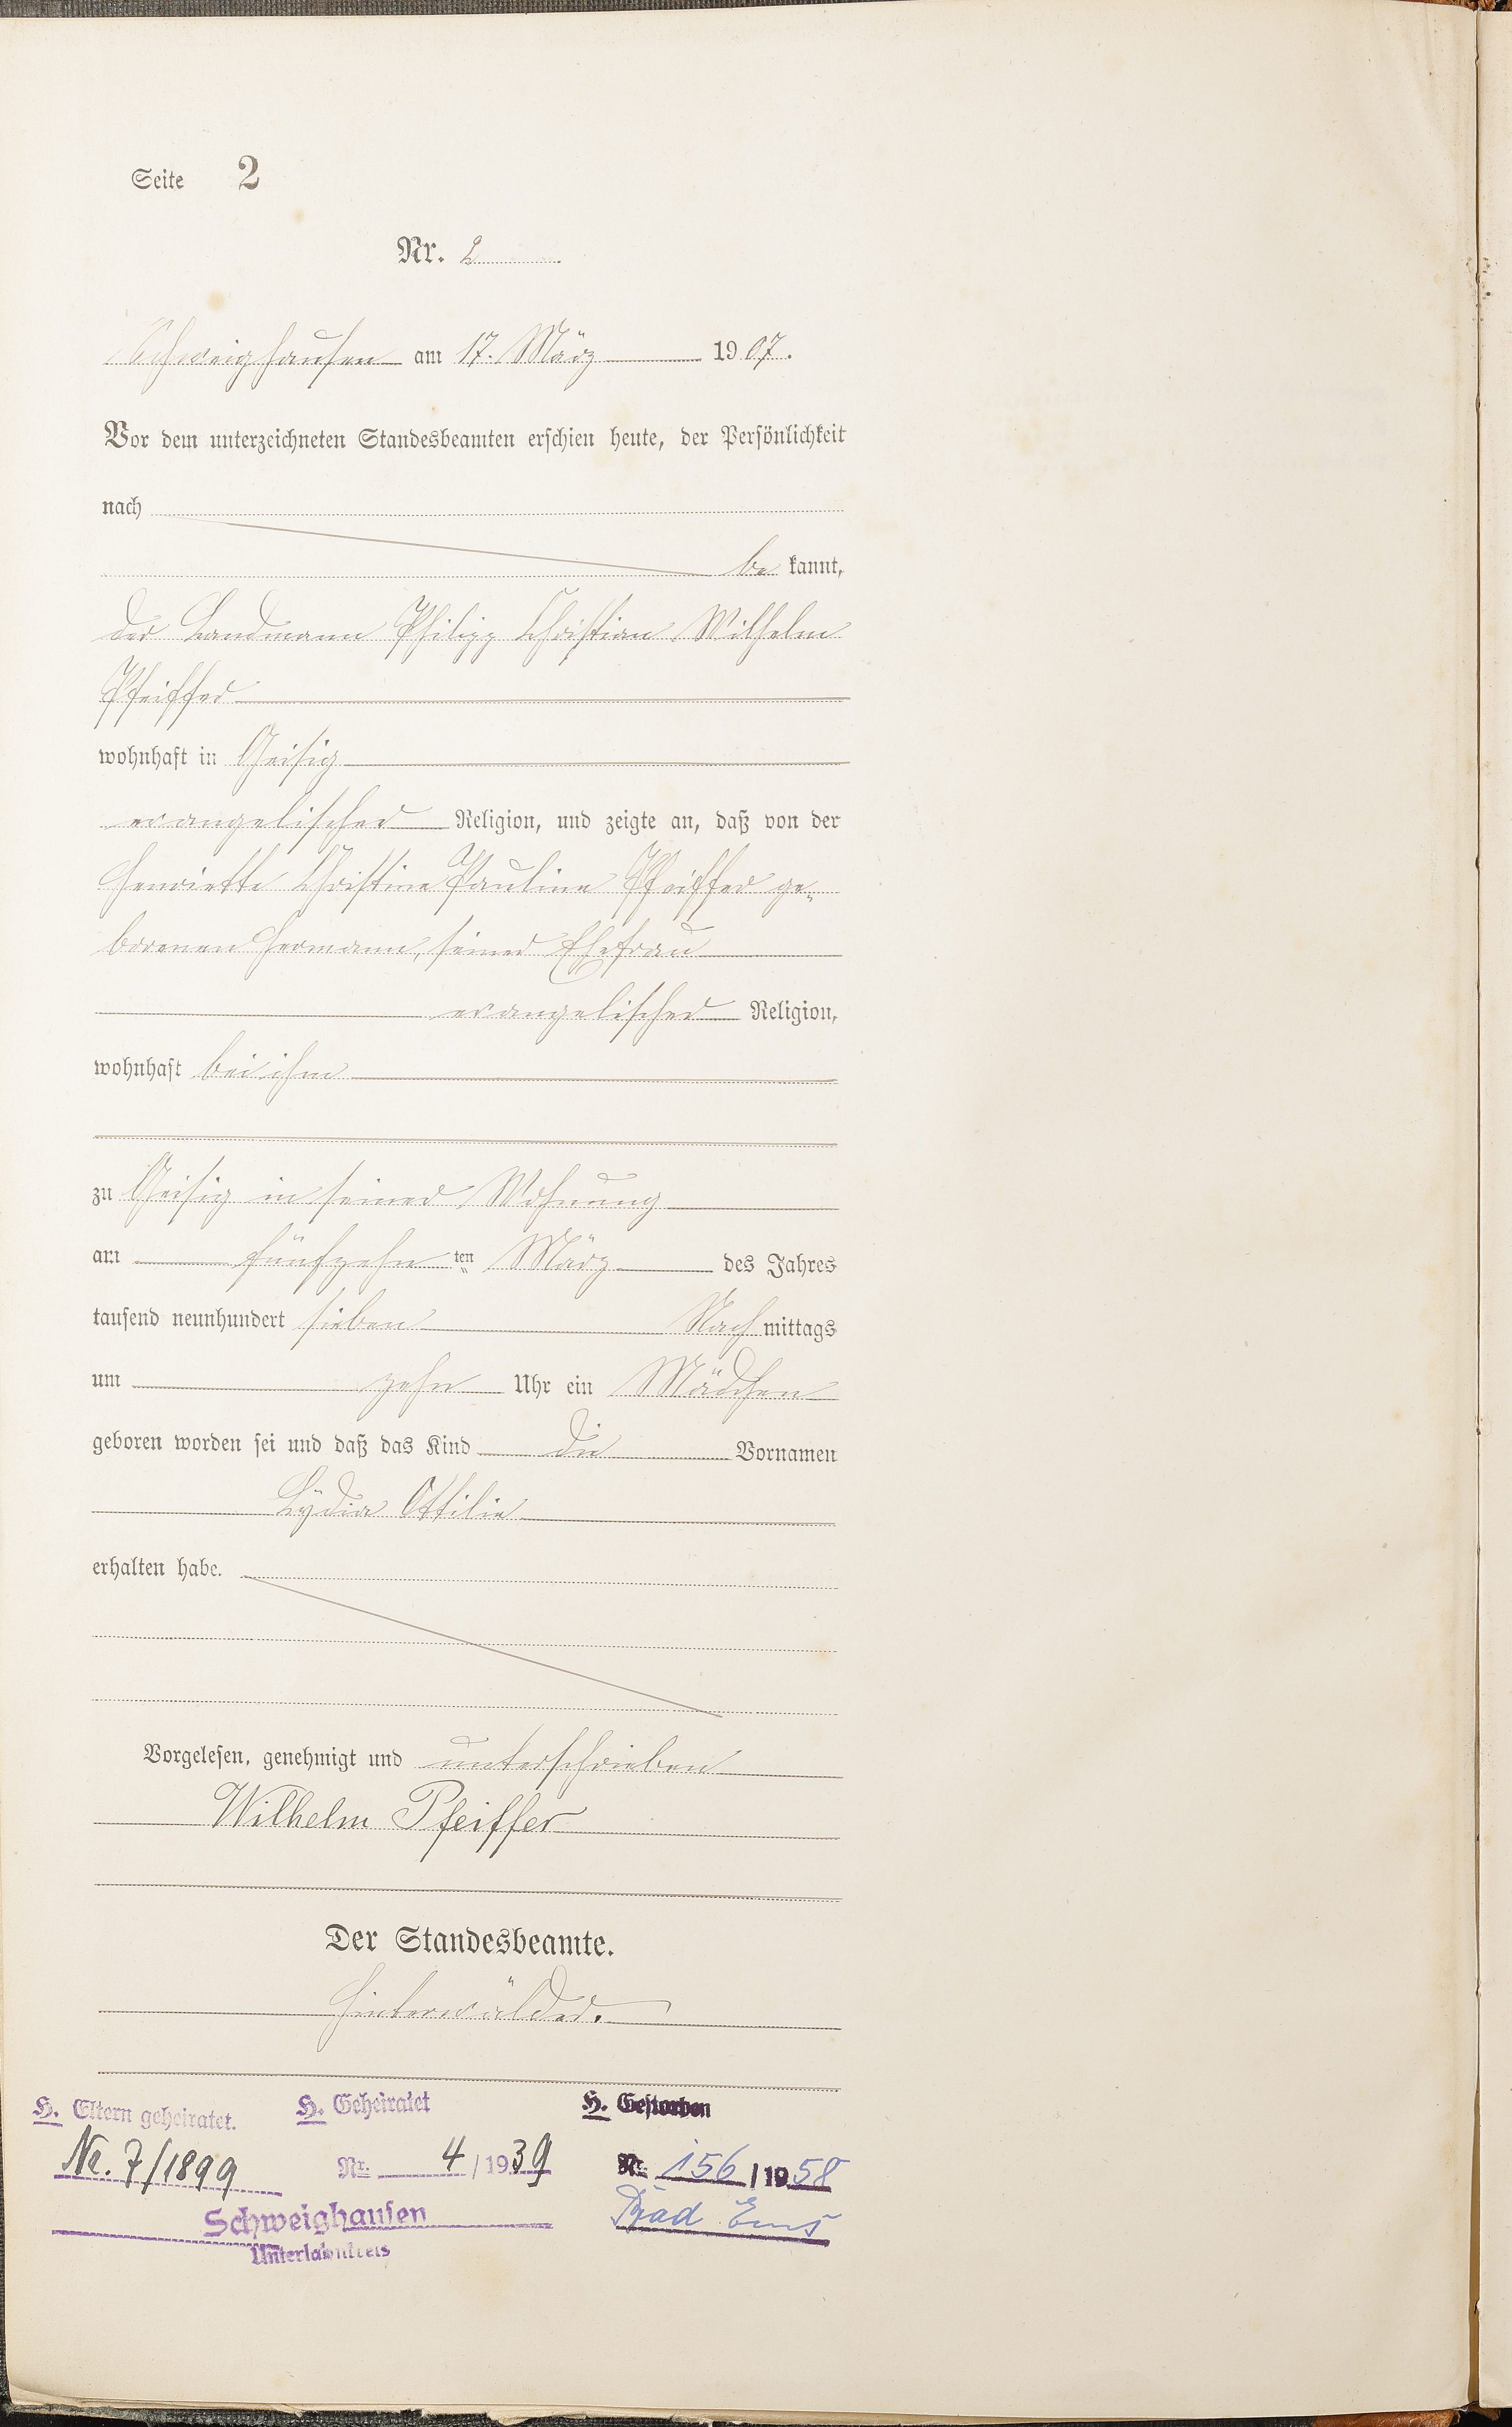 Seite 2
Nr. 2
Schweighausen am 17. März 1907.
Vor dem unterzeichneten Standesbeamten erschien heute, der Persönlichkeit
nach
be kannt,
der Landmann Philipp Christian Wilhelm
Pfeiffer
wohnhaft in Geisig
evangelischer Religion, und zeigte an, daß von der
Henriette Christine Pauline Pfeiffer ge-
borenen Hermann, seiner Ehefrau
evangelischer Religion,
wohnhaft bei ihm
zu Geisig in seiner Wohnung
am fünfzehn ten März des Jahres
tausend neunhundert sieben Nach mittags
um zehn Uhr ein Mädchen
geboren worden sei und daß das Kind die Vornamen
Lydia Ottilie
erhalten habe.
Vorgelesen, genehmigt und unterschrieben
Wilhelm Pfeiffer
Der Standesbeamte.
Hinterwälder.
H. Eltern geheiratet. H. Geheiratet H. Gestorben
Nr. 7/1899 Nr. 4/1939 Nr. 156/1958
Schweighausen Bad Ems
Unterlahnkreis